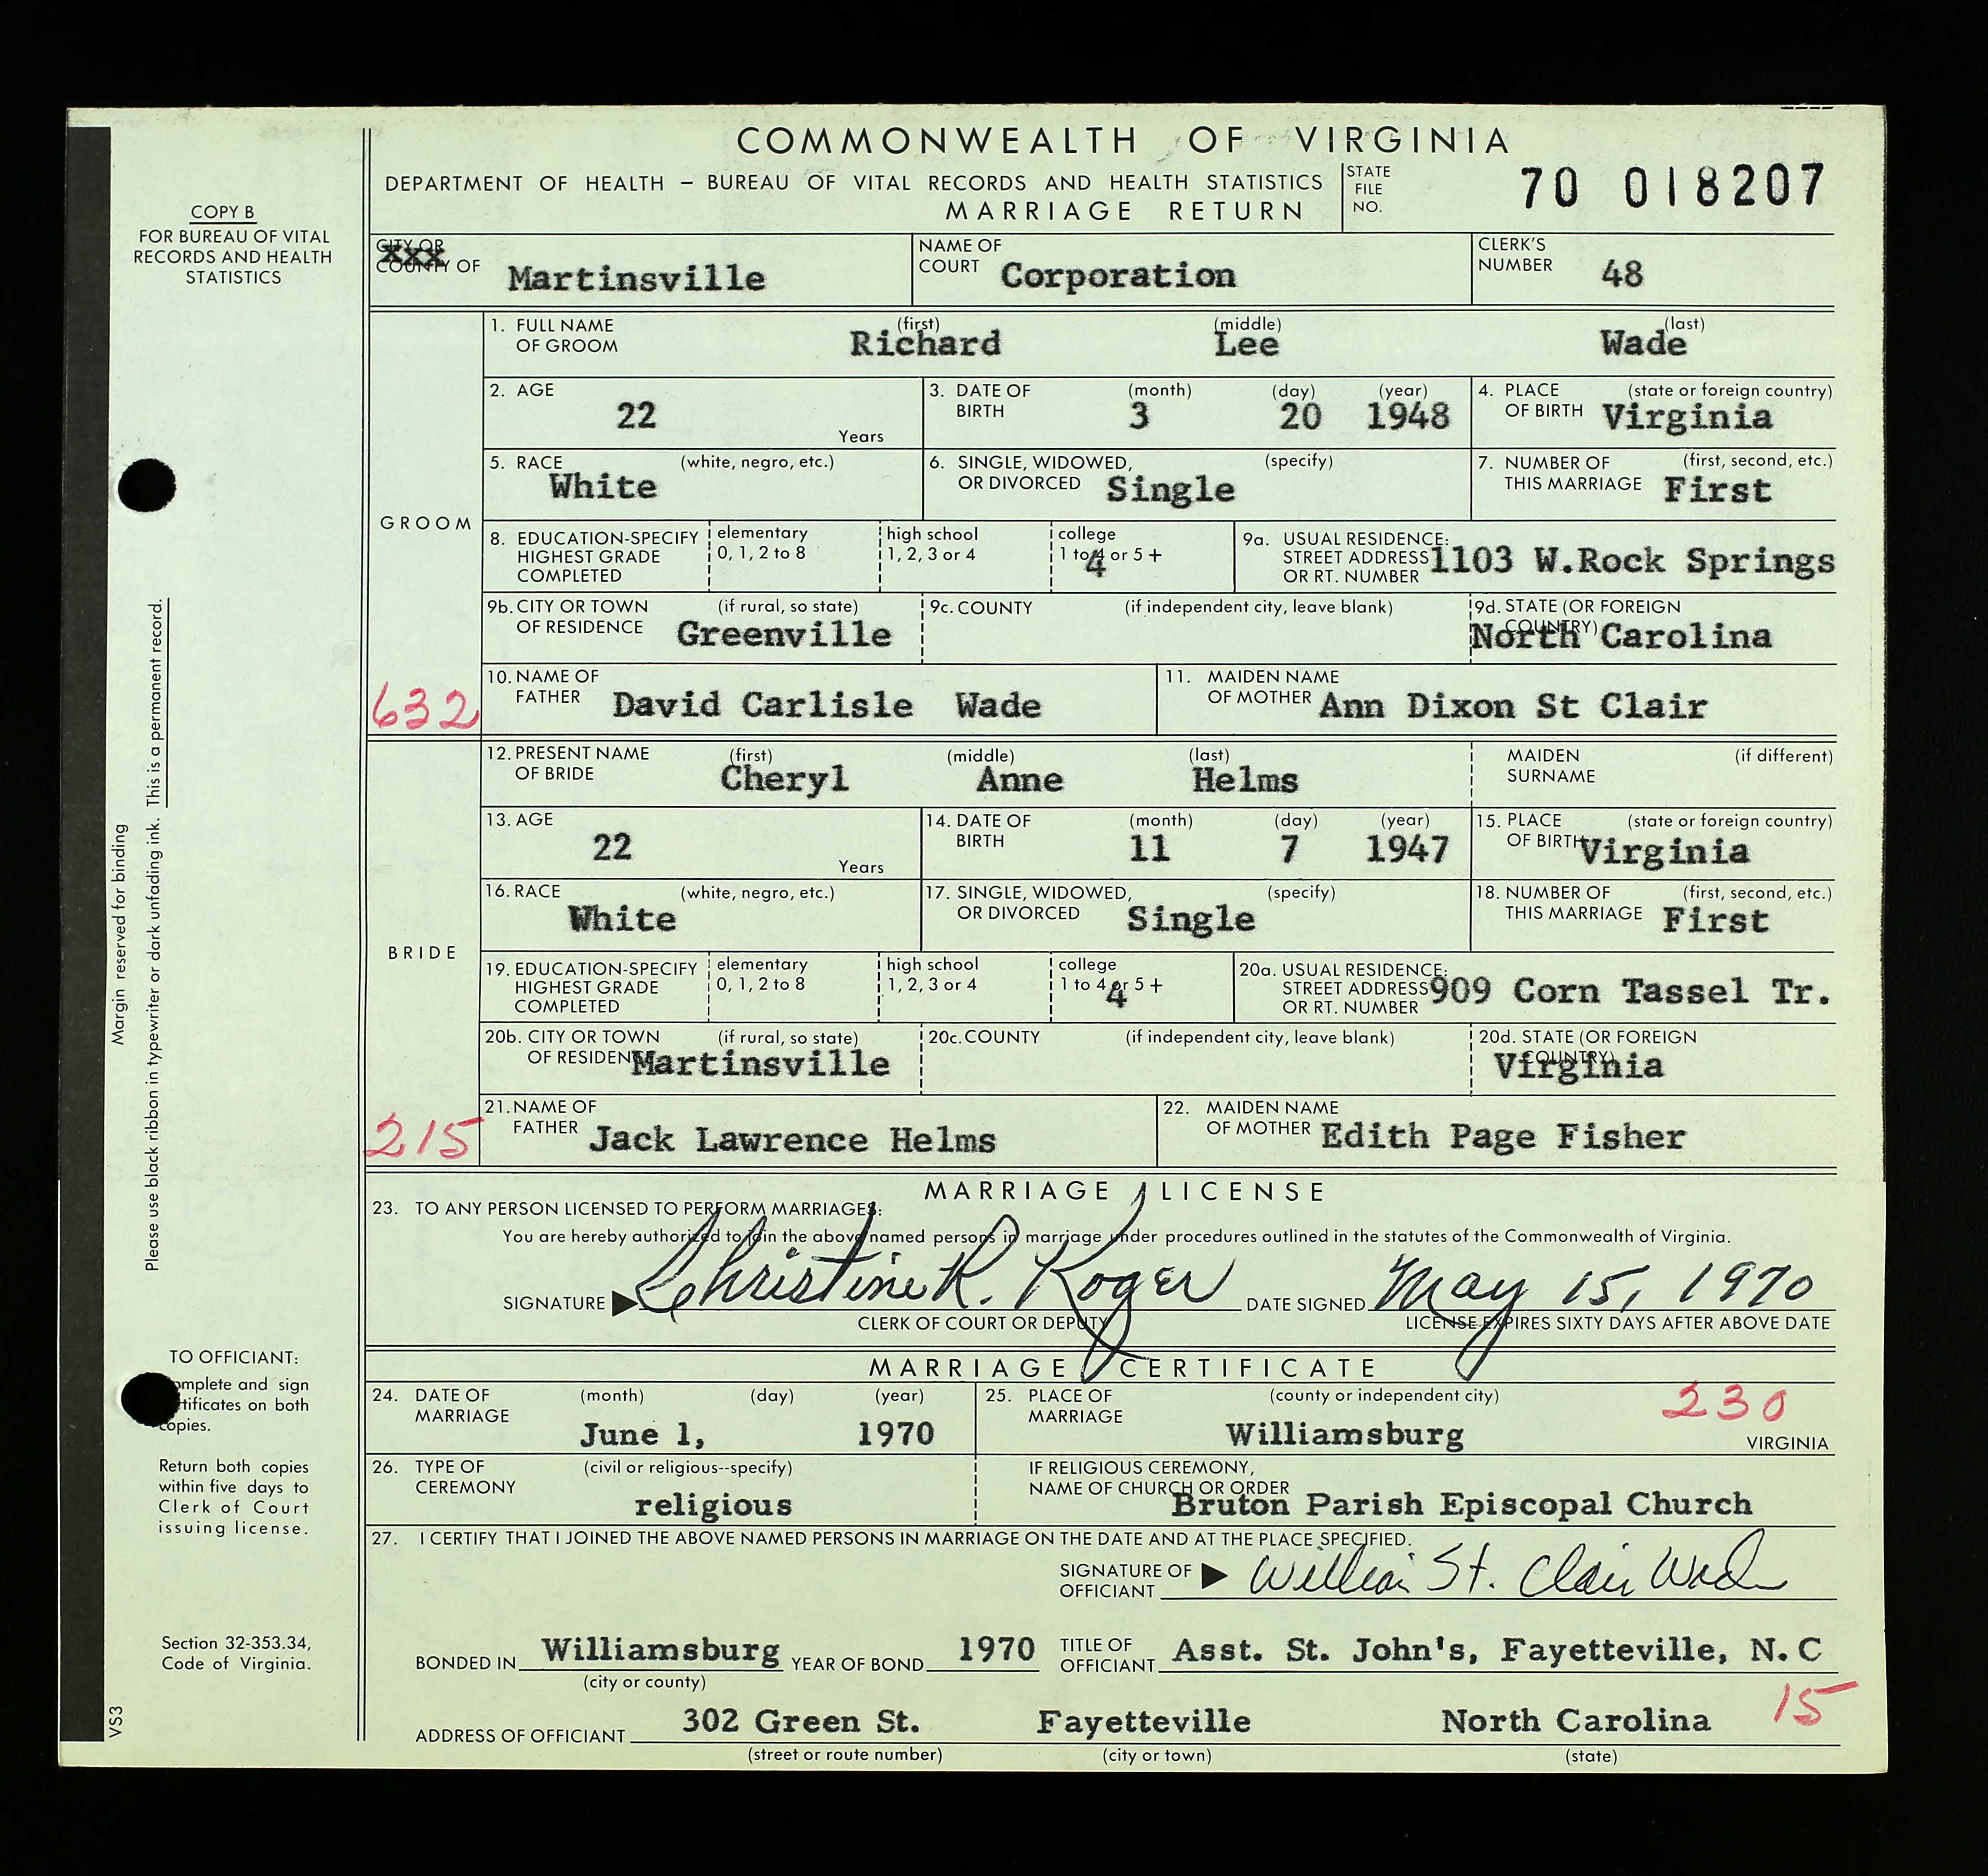 COMMONWEALTH OF VIRGINIA
DEPARTMENT OF HEALTH – BUREAU OF VITAL RECORDS AND HEALTH STATISTICS
MARRIAGE RETURN
STATE FILE NO. 70 018207
COPY B
FOR BUREAU OF VITAL
RECORDS AND HEALTH
STATISTICS
CITY OR
xxx
COUNTY OF Martinsville
NAME OF COURT Corporation
CLERK'S NUMBER 48
GROOM
1. FULL NAME OF GROOM (first) Richard (middle) Lee (last) Wade
2. AGE 22 Years
3. DATE OF BIRTH (month) 3 (day) 20 (year) 1948
4. PLACE OF BIRTH (state or foreign country) Virginia
5. RACE (white, negro, etc.) White
6. SINGLE, WIDOWED, OR DIVORCED (specify) Single
7. NUMBER OF THIS MARRIAGE (first, second, etc.) First
8. EDUCATION-SPECIFY HIGHEST GRADE COMPLETED elementary 0, 1, 2 to 8 high school 1, 2, 3 or 4 college 1 to 4 or 5 + 4
9a. USUAL RESIDENCE: STREET ADDRESS OR RT. NUMBER 1103 W.Rock Springs
9b. CITY OR TOWN OF RESIDENCE (if rural, so state) Greenville
9c. COUNTY (if independent city, leave blank)
9d. STATE (OR FOREIGN COUNTRY) North Carolina
10. NAME OF FATHER David Carlisle Wade
11. MAIDEN NAME OF MOTHER Ann Dixon St Clair
632
BRIDE
12. PRESENT NAME OF BRIDE (first) Cheryl (middle) Anne (last) Helms
MAIDEN SURNAME (if different)
13. AGE 22 Years
14. DATE OF BIRTH (month) 11 (day) 7 (year) 1947
15. PLACE OF BIRTH (state or foreign country) Virginia
16. RACE (white, negro, etc.) White
17. SINGLE, WIDOWED, OR DIVORCED (specify) Single
18. NUMBER OF THIS MARRIAGE (first, second, etc.) First
19. EDUCATION-SPECIFY HIGHEST GRADE COMPLETED elementary 0, 1, 2 to 8 high school 1, 2, 3 or 4 college 1 to 4 or 5 + 4
20a. USUAL RESIDENCE: STREET ADDRESS OR RT. NUMBER 909 Corn Tassel Tr.
20b. CITY OR TOWN OF RESIDENCE (if rural, so state) Martinsville
20c. COUNTY (if independent city, leave blank)
20d. STATE (OR FOREIGN COUNTRY) Virginia
21. NAME OF FATHER Jack Lawrence Helms
22. MAIDEN NAME OF MOTHER Edith Page Fisher
215
MARRIAGE LICENSE
23. TO ANY PERSON LICENSED TO PERFORM MARRIAGES:
You are hereby authorized to join the above named persons in marriage under procedures outlined in the statutes of the Commonwealth of Virginia.
SIGNATURE Christine R. Koger DATE SIGNED May 15, 1970
CLERK OF COURT OR DEPUTY LICENSE EXPIRES SIXTY DAYS AFTER ABOVE DATE
MARRIAGE CERTIFICATE
24. DATE OF MARRIAGE (month) (day) (year) June 1, 1970
25. PLACE OF MARRIAGE (county or independent city) Williamsburg VIRGINIA
230
26. TYPE OF CEREMONY (civil or religious--specify) religious
IF RELIGIOUS CEREMONY, NAME OF CHURCH OR ORDER Bruton Parish Episcopal Church
27. I CERTIFY THAT I JOINED THE ABOVE NAMED PERSONS IN MARRIAGE ON THE DATE AND AT THE PLACE SPECIFIED.
SIGNATURE OF OFFICIANT William St. Clair Wade
BONDED IN Williamsburg YEAR OF BOND 1970 TITLE OF OFFICIANT Asst. St. John's, Fayetteville, N.C
(city or county)
ADDRESS OF OFFICIANT 302 Green St. Fayetteville North Carolina
15
(street or route number) (city or town) (state)
Margin reserved for binding
Please use black ribbon in typewriter or dark unfading ink. This is a permanent record.
TO OFFICIANT:
omplete and sign
tificates on both
copies.
Return both copies
within five days to
Clerk of Court
issuing license.
Section 32-353.34,
Code of Virginia.
VS3